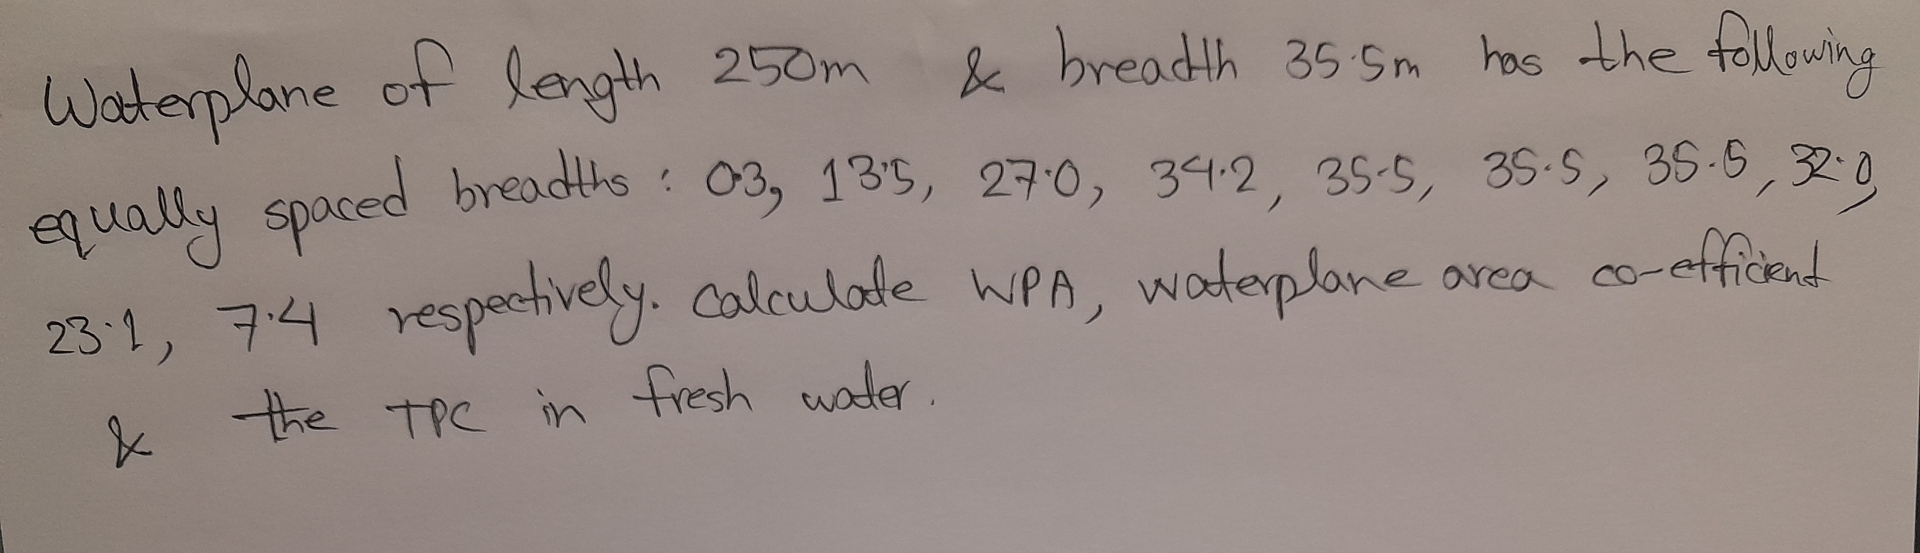 Waterplane of length 250m & breadth 35.5m has the following
equally spaced breadths : 0.3, 13.5, 27.0, 34.2, 35.5, 35.5, 35.5, 32.0,
23.1, 7.4 respectively. Calculate WPA, waterplane area co-efficient
& the TPC in fresh water.